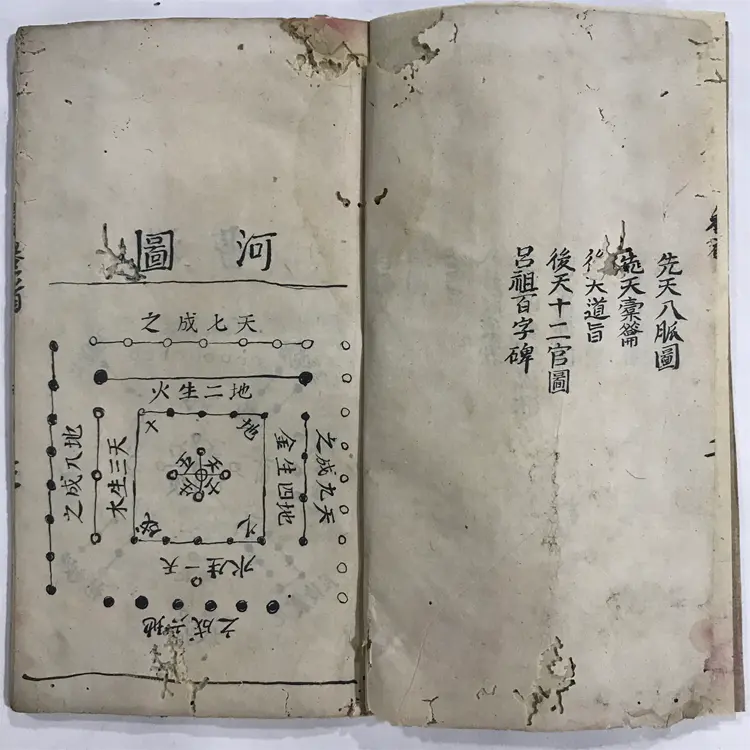 先天八脈圖
天橐籥
大道旨
後天十二官圖
呂祖百字碑
河圖
天七成之
地二生火
之成九天
金生四地
天三生木
地八成之
天一生水
地六成之